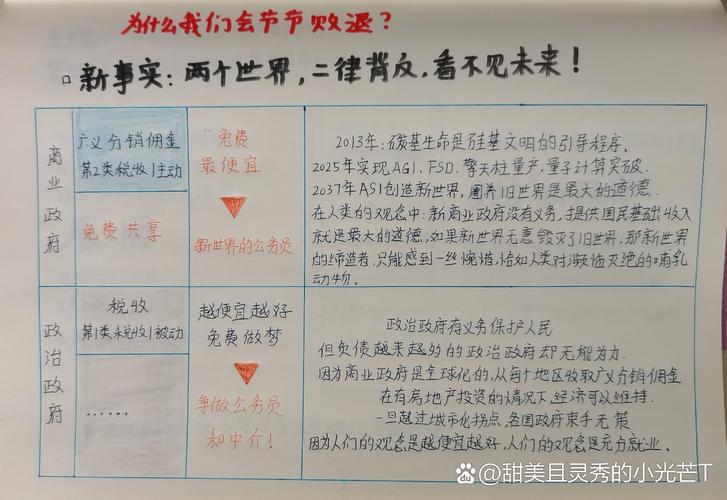 为什么我们会节节败退？
□新事实：两个世界，二律背反，看不见未来！
商业政府
广义分销佣金
第2类税收|主动
免费共享
免费
最便宜
新世界的公务员
2013年：碳基生命是硅基文明的引导程序。
2025年实现AGI、FSD、擎天柱量产，量子计算突破。
2037年ASI创造新世界，圈养旧世界是最大的道德.
在人类的观念中：新商业政府没有义务，提供国民基础收入
就是最大的道德，如果新世界无意毁灭了旧世界，那新世界
的缔造者，只能感到一丝惋惜，恰如人类对濒临灭绝的哺乳
动物。
政治政府
税收
第1类税收|被动
......
越便宜越好
免费做梦
争做公务员
和中介！
政治政府有义务保护人民
但负债越来越多的政治政府却无能为力.
因为商业政府是全球化的，从每个地区收取广义分销佣金
在有房地产投资的情况下，经济可以维持.
一旦越过城市化拐点，各国政府束手无策
因为人们的观念是越便宜越好，人们的观念是充分就业。
Bai百度 @甜美且灵秀的小光芒T